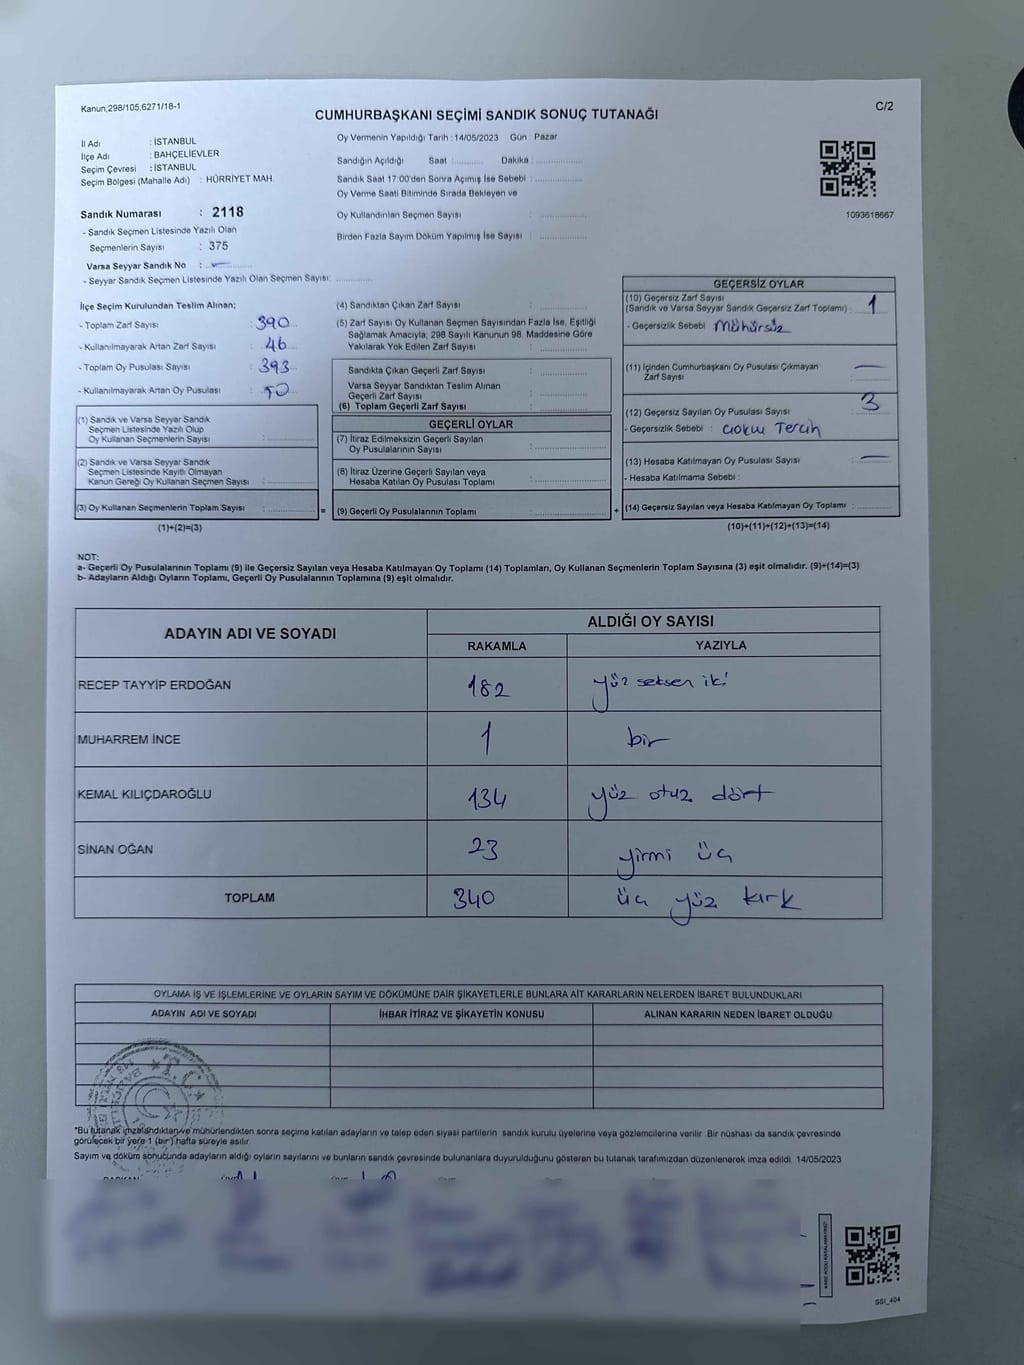 Kanun,298/105,6271/18-1
C/2
CUMHURBAŞKANI SEÇİMİ SANDIK SONUÇ TUTANAĞI
İl Adı : İSTANBUL
İlçe Adı : BAHÇELİEVLER
Seçim Çevresi : İSTANBUL
Seçim Bölgesi (Mahalle Adı) : HÜRRİYET MAH.
Sandık Numarası : 2118
- Sandık Seçmen Listesinde Yazılı Olan
Seçmenlerin Sayısı : 375
Varsa Seyyar Sandık No : -
- Seyyar Sandık Seçmen Listesinde Yazılı Olan Seçmen Sayısı: ............
Oy Vermenin Yapıldığı Tarih : 14/05/2023 Gün : Pazar
Sandığın Açıldığı Saat ............ Dakika ................
Sandık Saat 17.00'den Sonra Açımış İse Sebebi : ................
Oy Verme Saati Bitiminde Sırada Bekleyen ve
Oy Kullandırılan Seçmen Sayısı : ................
Birden Fazla Sayım Döküm Yapılmış İse Sayısı : ................
1093618667
İlçe Seçim Kurulundan Teslim Alınan;
- Toplam Zarf Sayısı : 390
- Kullanılmayarak Artan Zarf Sayısı : 46
- Toplam Oy Pusulası Sayısı : 393
- Kullanılmayarak Artan Oy Pusulası : 50
(1) Sandık ve Varsa Seyyar Sandık
Seçmen Listesinde Yazılı Olup
Oy Kullanan Seçmenlerin Sayısı : ................
(2) Sandık ve Varsa Seyyar Sandık
Seçmen Listesinde Kayıtlı Olmayan
Kanun Gereği Oy Kullanan Seçmen Sayısı : ................
(3) Oy Kullanan Seçmenlerin Toplam Sayısı : ................ =
(1)+(2)=(3)
(4) Sandıktan Çıkan Zarf Sayısı : ................
(5) Zarf Sayısı Oy Kullanan Seçmen Sayısından Fazla İse, Eşitliği
Sağlamak Amacıyla, 298 Sayılı Kanunun 98. Maddesine Göre
Yakılarak Yok Edilen Zarf Sayısı : ................
Sandıkta Çıkan Geçerli Zarf Sayısı : ................
Varsa Seyyar Sandıktan Teslim Alınan
Geçerli Zarf Sayısı : ................
(6) Toplam Geçerli Zarf Sayısı : ................
GEÇERLİ OYLAR
(7) İtiraz Edilmeksizin Geçerli Sayılan
Oy Pusulalarının Sayısı : ................
(8) İtiraz Üzerine Geçerli Sayılan veya
Hesaba Katılan Oy Pusulası Toplamı : ................
(9) Geçerli Oy Pusulalarının Toplamı : ................ +
GEÇERSİZ OYLAR
(10) Geçersiz Zarf Sayısı
(Sandık ve Varsa Seyyar Sandık Geçersiz Zarf Toplamı) : 1
- Geçersizlik Sebebi : Mühürsüz
(11) İçinden Cumhurbaşkanı Oy Pusulası Çıkmayan
Zarf Sayısı : —
(12) Geçersiz Sayılan Oy Pusulası Sayısı : 3
- Geçersizlik Sebebi : Çoklu Tercih
(13) Hesaba Katılmayan Oy Pusulası Sayısı : —
- Hesaba Katılmama Sebebi :
(14) Geçersiz Sayılan veya Hesaba Katılmayan Oy Toplamı : ............
(10)+(11)+(12)+(13)=(14)
NOT:
a- Geçerli Oy Pusulalarının Toplamı (9) ile Geçersiz Sayılan veya Hesaba Katılmayan Oy Toplamı (14) Toplamları, Oy Kullanan Seçmenlerin Toplam Sayısına (3) eşit olmalıdır. (9)+(14)=(3)
b- Adayların Aldığı Oyların Toplamı, Geçerli Oy Pusulalarının Toplamına (9) eşit olmalıdır.
ADAYIN ADI VE SOYADI
ALDIĞI OY SAYISI
RAKAMLA YAZIYLA
RECEP TAYYİP ERDOĞAN 182 yüz seksen iki
MUHARREM İNCE 1 bir
KEMAL KILIÇDAROĞLU 134 yüz otuz dört
SİNAN OĞAN 23 yirmi üç
TOPLAM 340 üç yüz kırk
OYLAMA İŞ VE İŞLEMLERİNE VE OYLARIN SAYIM VE DÖKÜMÜNE DAİR ŞİKAYETLERLE BUNLARA AİT KARARLARIN NELERDEN İBARET BULUNDUKLARI
ADAYIN ADI VE SOYADI İHBAR İTİRAZ VE ŞİKAYETİN KONUSU ALINAN KARARIN NEDEN İBARET OLDUĞU
T.C.
*Bu tutanak imzalandıktan ve mühürlendikten sonra seçime katılan adayların ve talep eden siyasi partilerin sandık kurulu üyelerine veya gözlemcilerine verilir .Bir nüshası da sandık çevresinde
görülecek bir yere 1 (bir) hafta süreyle asılır.
Sayım ve döküm sonucunda adayların aldığı oyların sayılarını ve bunların sandık çevresinde bulunanlara duyurulduğunu gösteren bu tutanak tarafımızdan düzenlenerek imza edildi. 14/05/2023
SSI_404